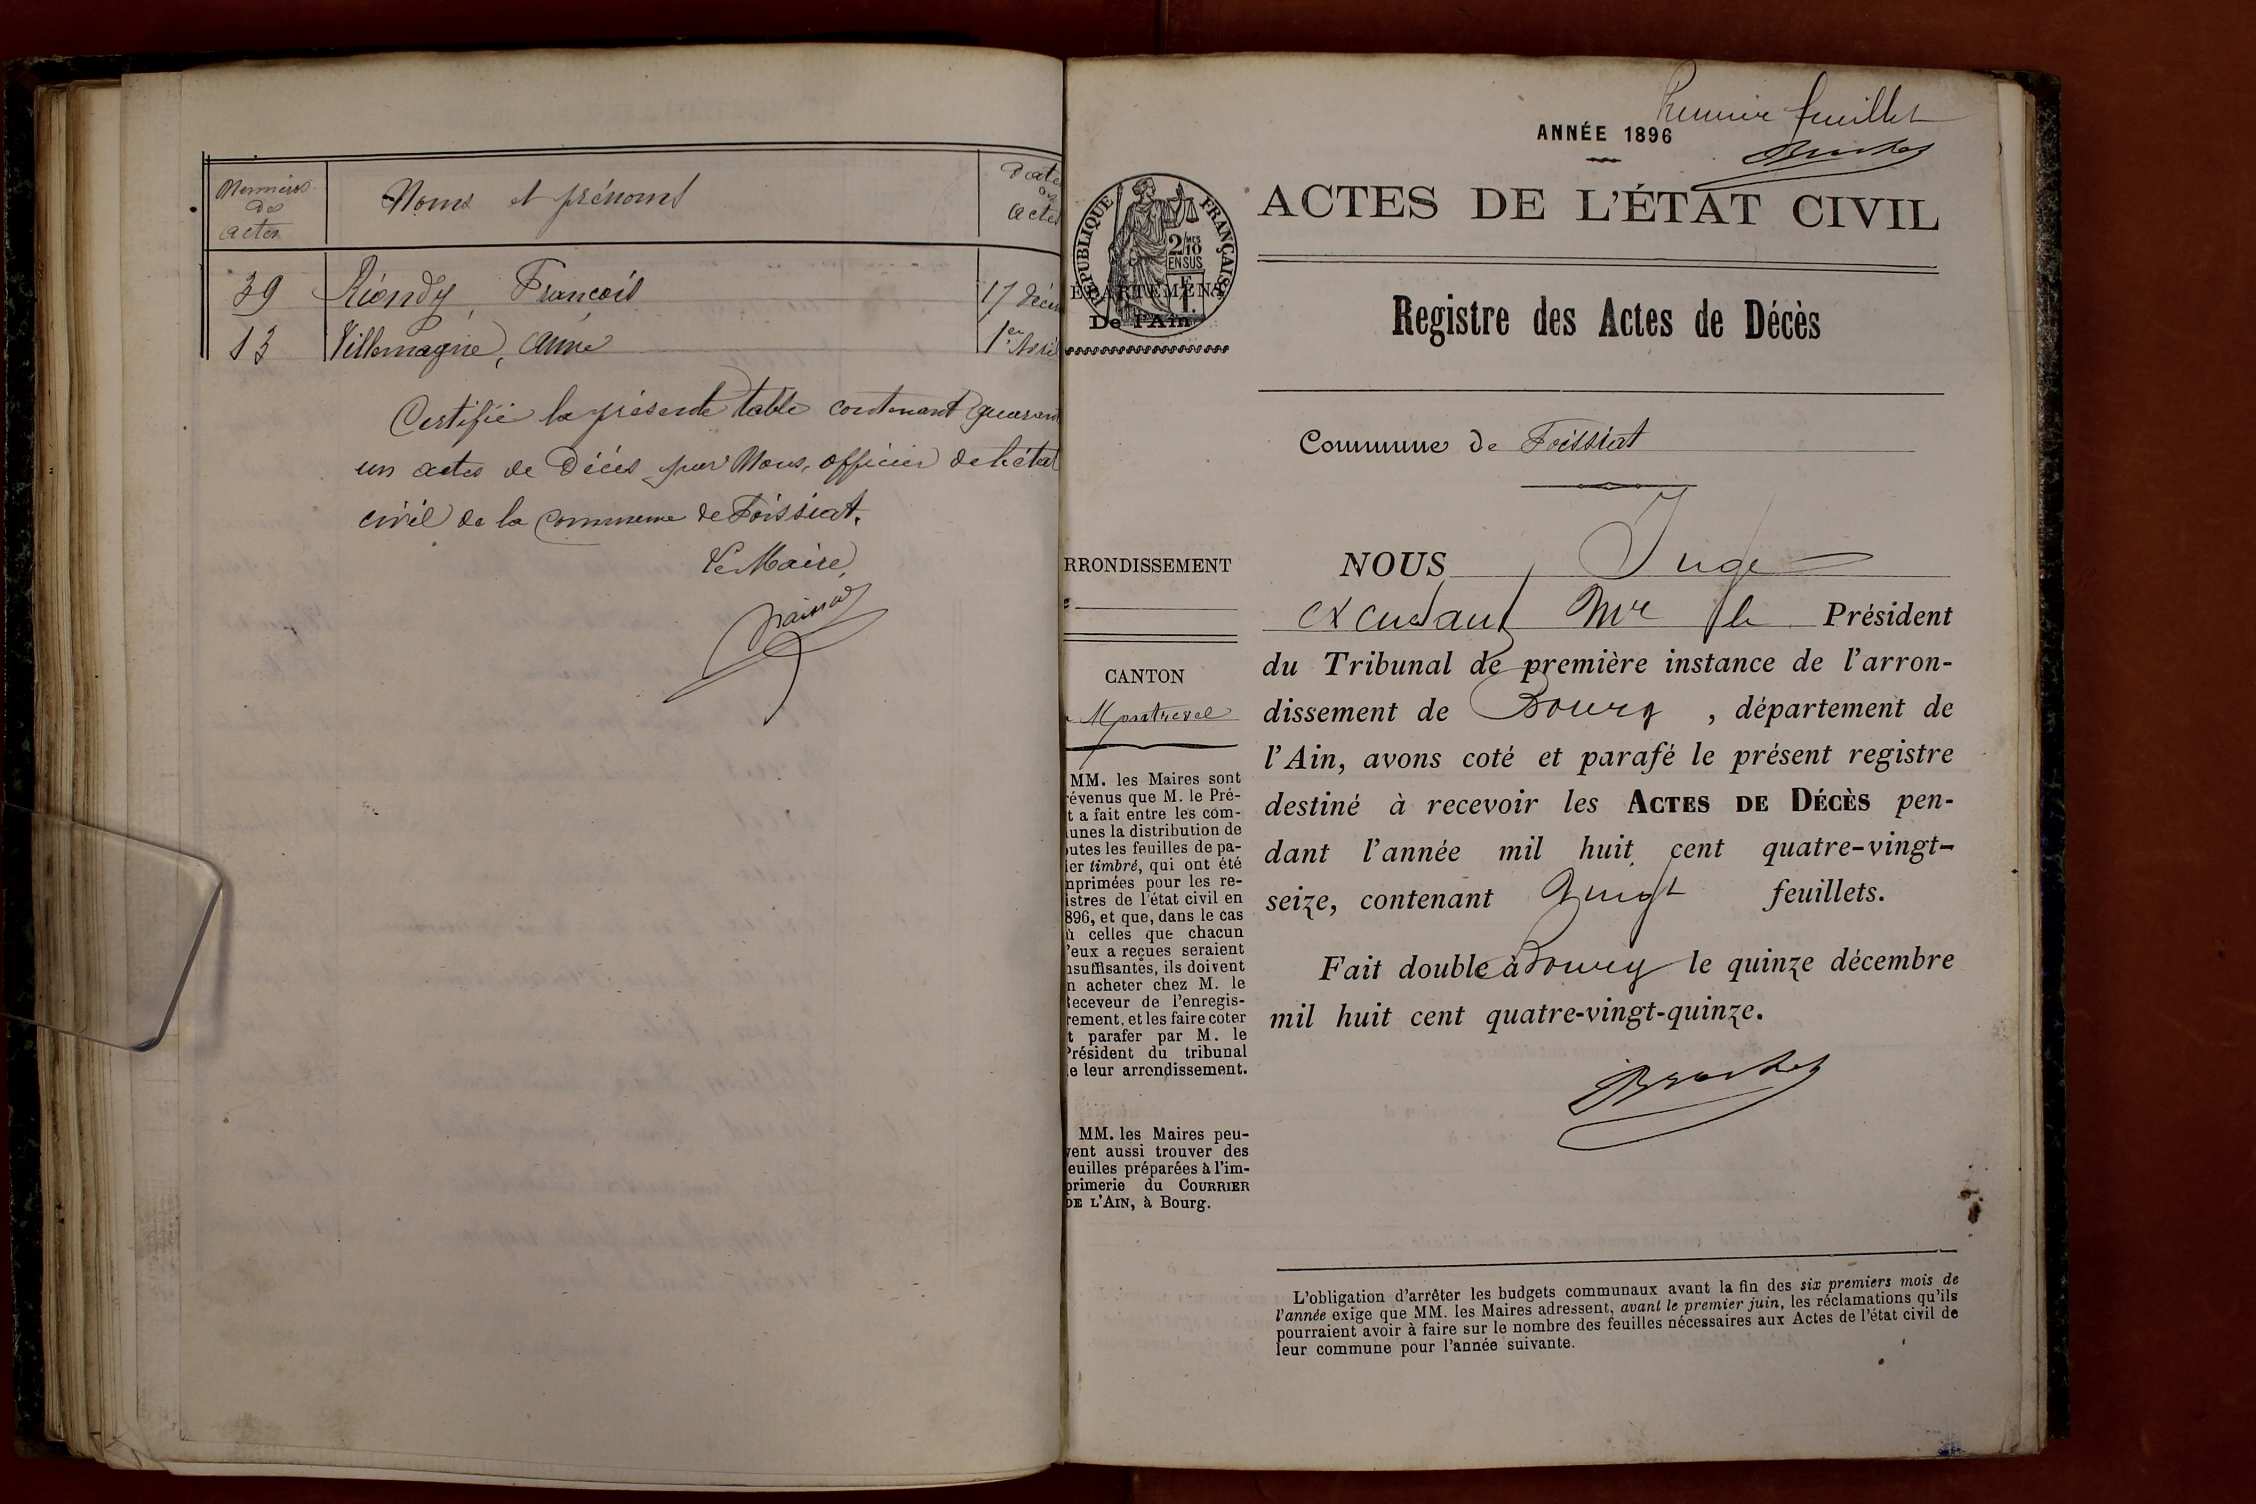 Numéros
des
actes
Noms et prénoms
Date
des
actes
39 Riondy, François 17 Décem
13 Villemagne, Anne 1er Avril
Certifié la présente table contenant quarant
un actes de Décès par Nous, officier de l'état
civil de la commune de Foissiat.
Le Maire,
Premier feuillet
ANNÉE 1896
ACTES DE L'ÉTAT CIVIL
RÉPUBLIQUE FRANÇAISE
2/10 MES
EN SUS
ÉPARTEMENT
De l'Ain
Registre des Actes de Décès
Commune de Foissiat
RRONDISSEMENT
CANTON
Montrevel
MM. les Maires sont
révenus que M. le Pré-
t a fait entre les com-
unes la distribution de
outes les feuilles de pa-
ier timbré, qui ont été
mprimées pour les re-
istres de l'état civil en
896, et que, dans le cas
ù celles que chacun
'eux a reçues seraient
nsuffisantes, ils doivent
n acheter chez M. le
Receveur de l'enregis-
rement, et les faire coter
t parafer par M. le
Président du tribunal
e leur arrondissement.
MM. les Maires peu-
vent aussi trouver des
euilles préparées à l'im-
primerie du COURRIER
DE L'AIN, à Bourg.
NOUS Juge
excusant Mr le Président
du Tribunal de première instance de l'arron-
dissement de Bourg, département de
l'Ain, avons coté et parafé le présent registre
destiné à recevoir les ACTES DE DÉCÈS pen-
dant l'année mil huit cent quatre-vingt-
seize, contenant Vingt feuillets.
Fait double à Bourg le quinze décembre
mil huit cent quatre-vingt-quinze.
L'obligation d'arrêter les budgets communaux avant la fin des six premiers mois de
l'année exige que MM. les Maires adressent, avant le premier juin, les réclamations qu'ils
pourraient avoir à faire sur le nombre des feuilles nécessaires aux Actes de l'état civil de
leur commune pour l'année suivante.